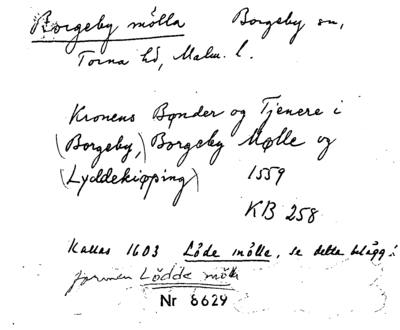 Borgeby mölla Borgeby sn,
Torna hd, Malm. l.
Kronens Bønder og Tjenere i
(Borgeby,) Borgeby Mølle og
(Lyddekiøpping) 1559
KB 258
Kallas 1603 Löde mölle, se detta belägg i
formen Lödde mölle
Nr 6629